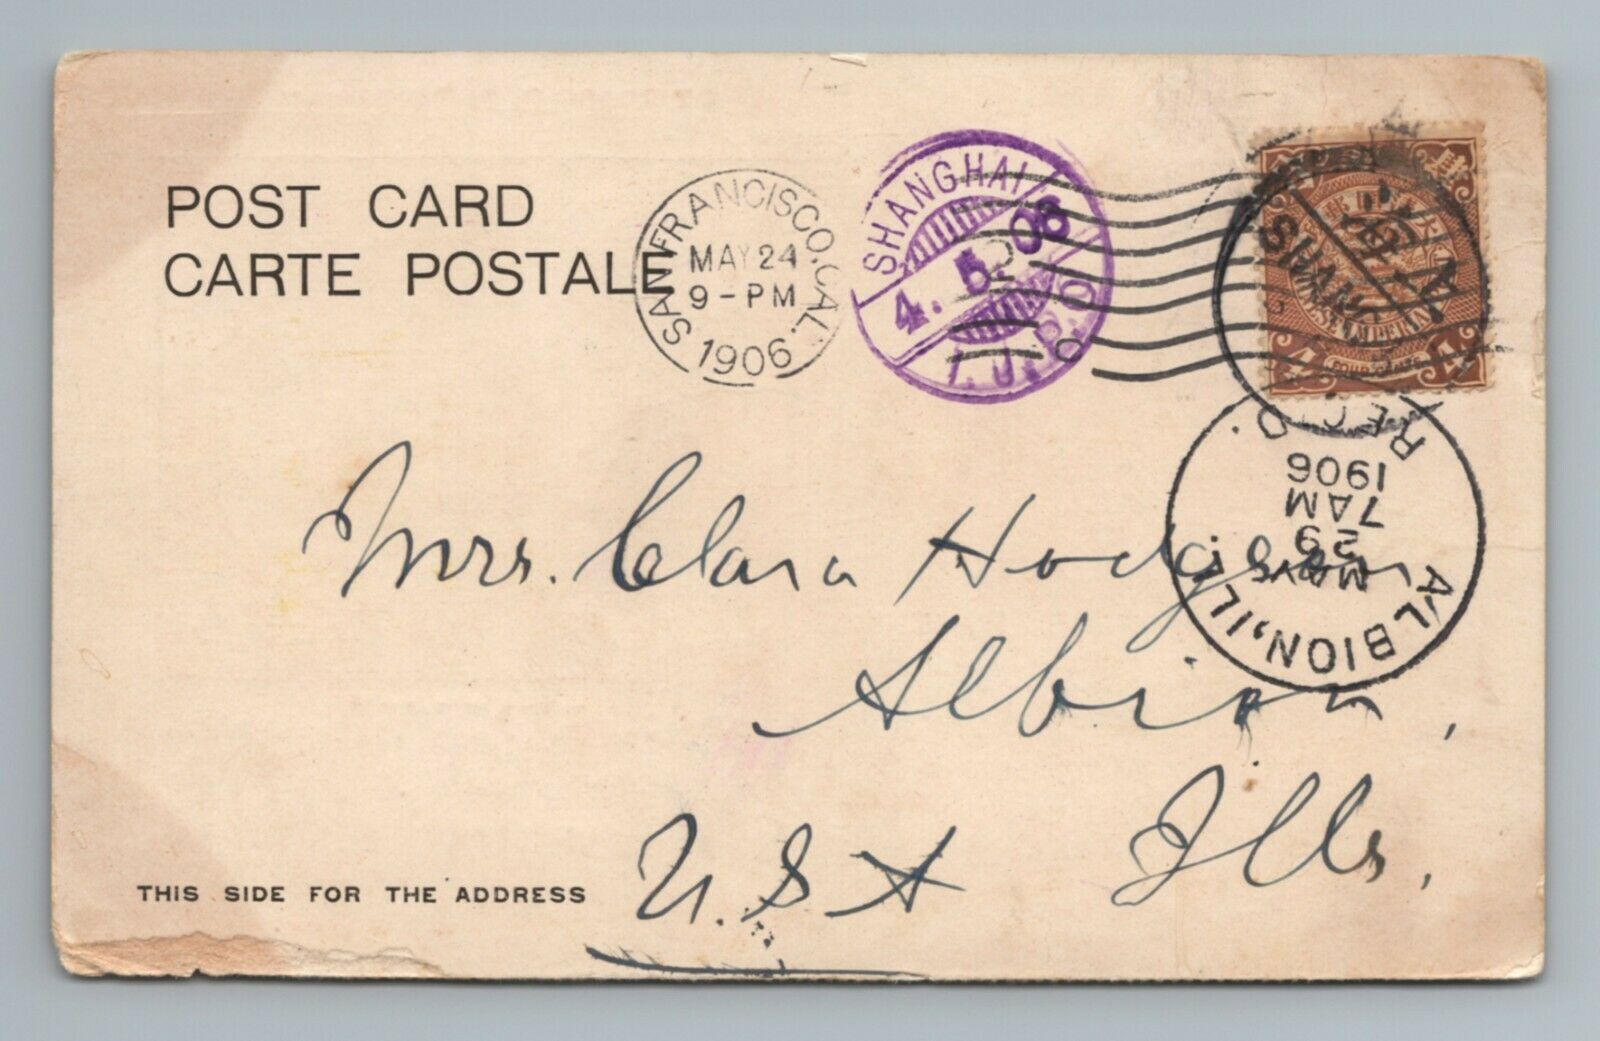 POST CARD
CARTE POSTALE
SAN FRANCISCO, CAL.
MAY 24
9-PM
1906
SHANGHAI
4. 5. 06
I.J.P.O
CHINESE IMPERIAL
4 FOUR CENTS 4
SIHAN
REC'D.
1906
7 AM
29
MAY
ALBION, ILL.
Mrs. Clara Hodgson
Albion,
Ills,
U.S.A
THIS SIDE FOR THE ADDRESS